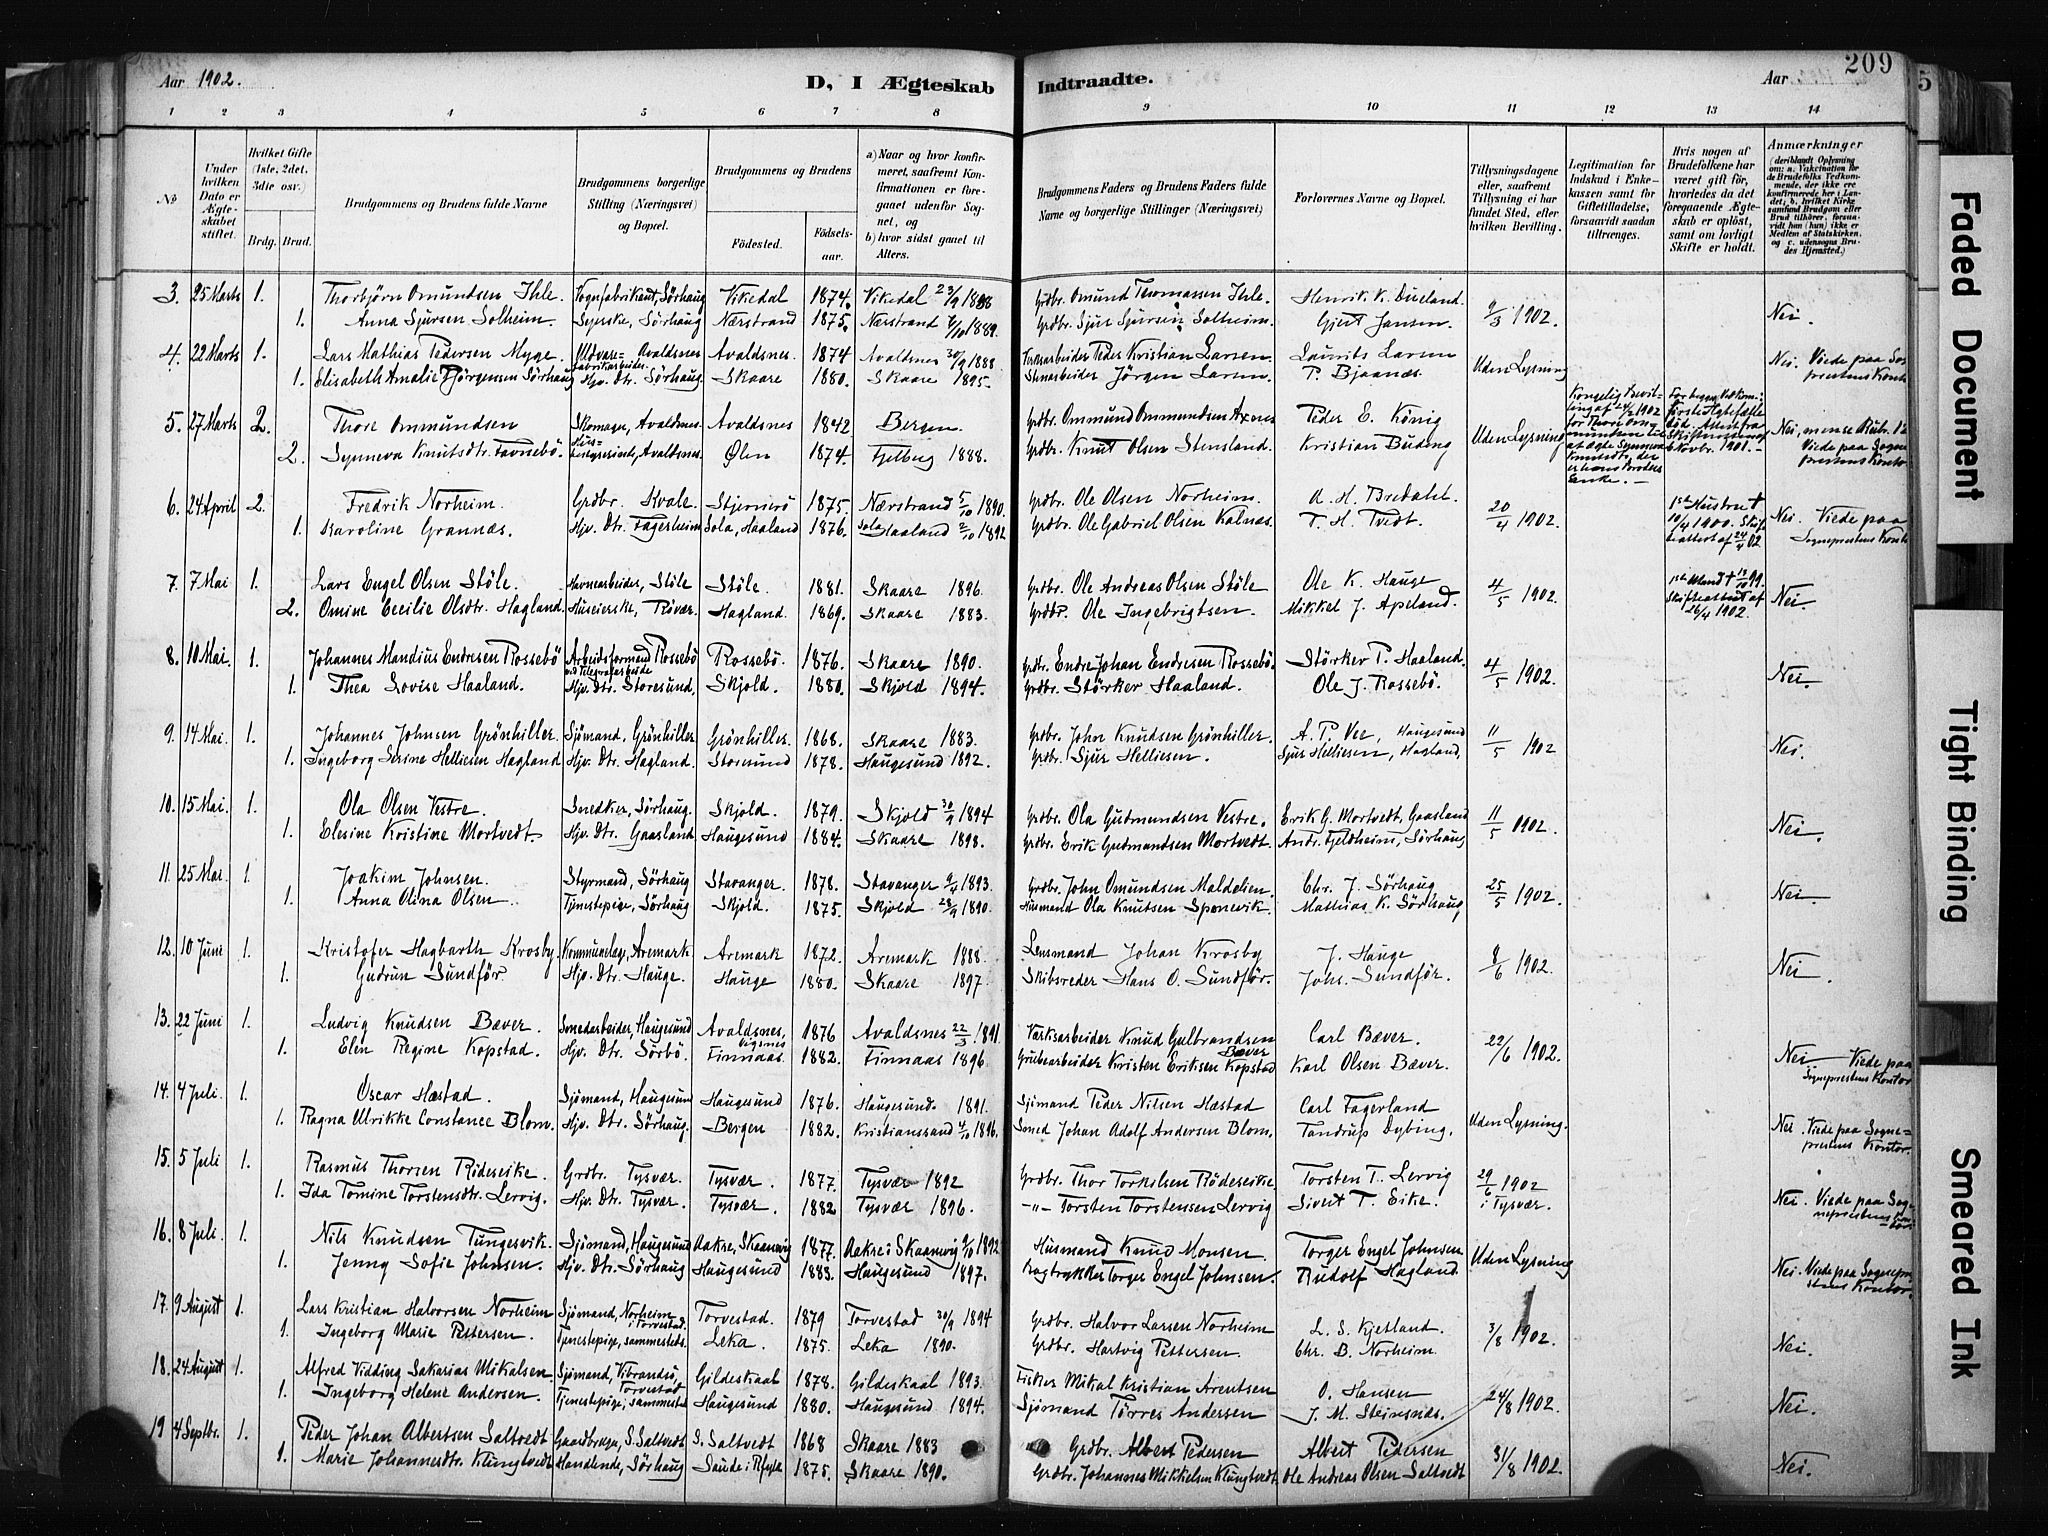 Aar 1902.
D, I Ægteskab Indtraadte.
Aar
209
5
1 2 3 4 5 6 7 8 9 10 11 12 13 14
№
Under hvilken Dato er Ægteskabet stiftet.
Hvilket Gifte (1ste, 2det, 3die osv.)
Brdg. Brud.
Brudgommens og Brudens fulde Navne
Brudgommens borgerlige Stilling (Næringsvei) og Bopæl.
Brudgommens og Brudens
Födested.
Födselsaar.
a) Naar og hvor konfirmeret, saafremt Konfirmationen er foregaaet udenfor Sognet, og
b) hvor sidst gaaet til Alters.
Brudgommens Faders og Brudens Faders fulde Navne og borgerlige Stillinger (Næringsvei)
Forlovernes Navne og Bopæl.
Tillysningsdagene eller, saafremt Tillysning ei har fundet Sted, efter hvilken Bevilling.
Legitimation for Indskud i Enkekassen samt for Giftetilladelse, forsaavidt saadan tiltrænges.
Hvis nogen af Brudefolkene har været gift för, hvorledes da det foregaaende Ægteskab er oplöst, samt om lovligt Skifte er holdt.
Anmærkninger
3. 25 Marts 1. Thorbjörn Omundsen Ihle. Vognfabrikant, Sörhaug Vikedal 1874. Vikedal 23/9 1888 Grdbr. Omund Thomassen Ihle. Henrik K. Dueland. 9/3 1902. Nei.
1. Anna Sjursen Solheim. Syerske, Sörhaug Nærstrand 1875. Nærstrand 6/10 1889. Grdbr. Sjur Sjursen Solheim. Gjert Jansen.
4. 22 Marts 1. Lars Mathias Pedersen Myge. Uldvarefabrikarbeider. Avaldsnes Avaldsnes. 1874 Avaldsnes 30/9 1888. Peder Kristian Larsen. Laurits Larsen Uden Lysning Nei. Viede paa Sog
1. Elisabeth Amalie Jörgensen Sörhaug Hjv. Dtr. Sörhaug. Skaare 1880. Skaare 1895. Stenarbeider Jörgen Larsen. P. Bjaanæs. prestens Kontor
5. 27 Marts 2. Thore Ommundsen Skomager, Avaldsnes. Avaldsnes 1842 Bergen. Grdbr. Ommund Ommundsen Axnes Peder E. König Uden Lysning Kongelig Bevilling af 24/2 1902 for Thore Ommundsen til at ægte Synneva Knutsdtr. der er hans Broders Enke. Nei,
2. Synneva Knutsdtr. Favnebö. Avaldsnes. Ølen 1874. Fjelberg 1888. Grdbr. Knut Olsen Stensland. Kristian Buding Viede paa Sogneprestens Kontor
6. 24 April 2. Fredrik Norheim. Grdbr. Kvale. Stjernerö 1875. Nærstrand 5/10 1890. Grdbr. Ole Olsen Norheim. A. H. Bredahl. 20/4 1902. 1ste Hustru † 10/4 1900. Skifteattest af 24/4 02 Nei. Viede paa
1. Karoline Grannæs. Hjv. Dtr. Fagerheim Sola, Haaland 1876. Sola Haaland 2/10 1892 Grdbr. Ole Gabriel Olsen Kalnæs. T. H. Tvedt. Sogneprestens Kontor
7. 7 Mai 1. Lars Engel Olsen Stöle. Havnearbeider, Stöle Stöle. 1881. Skaare 1896. Grdbr. Ole Andreas Olsen Stöle Ole K. Hauge 4/5 1902. 1ste Mand † 13/10 99. Skifteattest af 26/4 1902. Nei
2. Omine Cecilie Olsdtr. Hagland. Huseierske, Rövær. Hagland. 1869. Skaare 1883. Grdbr. Ole Ingebrigtsen. Mikkel J. Apeland.
8. 10 Mai. 1. Johannes Mandius Endresen Rossebö Arbeidsformand ved Telegrafarbeide Rossebö Rossebö. 1876. Skaare 1890. Grdbr. Endre Johan Endresen Rossebö. Störker P. Haaland. 4/5 1902. Nei.
1. Thea Lovise Haaland. Hjv. Dtr. Storesund, Skjold. 1880. Skjold 1894. Grdbr. Störker Haaland. Ole J. Rossebö.
9. 14 Mai. 1. Johannes Johnsen Grönhiller. Sjömand, Grönhiller. Grönhiller. 1868. Skaare 1883. Grdbr. John Knudsen Grönhiller. A. P. Vee, Haugesund 11/5 1902 Nei.
1. Ingeborg Serine Helliesen Hagland Hjv. Dtr. Hagland. Storesund 1878. Haugesund 1892. Grdbr. Sjur Helliesen. Sjur Helliesen, Hagland,
10. 15 Mai. 1. Ola Olsen Vestre. Snedker, Sörhaug. Skjold. 1879. Skjold 30/9 1894 Grdbr. Ola Gudmundsen Vestre. Erik G. Mortvedt, Gaasland 11/5 1902. Nei.
1. Elesine Kristine Mortvedt. Hjv. Dtr. Gaasland Haugesund 1884. Skaare 1898. Grdbr. Erik Gudmundsen Mortvedt. Andr. Fjeldheim, Sörhaug
11. 25 Mai. 1. Joakim Johnsen. Styrmand, Sörhaug Stavanger. 1878. Stavanger 9/4 1893. Grdbr. John Omundsen Maldelien. Chr. J. Sörhaug 25/5 1902. Nei.
1. Anna Olina Olsen. Tjenestepige, Sörhaug Skjold. 1875. Skjold 28/9 1890. Husmand Ola Knutsen Sponevik. Mathias K. Sörhaug,
12. 10 Juni 1. Kristofer Hagbarth Krosby. Kommunelæge, Aremark Aremark 1872. Aremark 1888. Lensmand Johan Krosby J. Hauge 8/6 1902. Nei
1. Gudrun Sundför Hjv. Dtr. Hauge. Hauge 1880. Skaare 1897. Skibsreder Hans O. Sundför. Johs. Sundför.
13. 22 Juni 1. Ludvig Knudsen Bæver. Smedarbeider, Haugesund Avaldsnes, Vigsnes 1876 Avaldsnes 22/3 1891 Værksarbeider Knud Gulbrandsen Bæver Carl Bæver. 22/6 1902. Nei Viede paa
1. Elen Regine Kopstad. Hjv. Dtr. Sörbö. Finnaas. 1882. Finnaas 1896. Grubearbeider Kristen Eriksen Kopstad Karl Olsen Bæver. Sogneprestens Kontor
14. 4 Juli. 1. Oscar Hæstad. Sjömand, Haugesund Haugesund 1876. Haugesund. 1891. Sjömand Peder Nilsen Hæstad Carl Fagerland Uden Lysning. Nei. Viede paa Sogne-
1. Ragna Ulrikke Constance Blom. Hjv. Dtr. Sörhaug. Bergen 1882. Kristianssand 4/10 1896. Smed Johan Adolf Andersen Blom. Tandrup Dybing. prestens Kontor.
15. 5 Juli 1. Rasmus Thorsen Rideseike. Grdbr. Tysvær. Tysvær. 1877. Tysvær 1892 Grdbr. Thor Torkelsen Rödeseike. Torsten T. Lervig 29/6 1902 i Tysvær. Nei. Viede paa Sogneprestens Kontor
1. Ida Tomine Torstensdtr. Lervig. Hjv. Dtr. Tysvær. Tysvær. 1882 Tysvær 1896. -"- Torsten Torstensen Lervig Sivert T. Eike.
16. 8 Juli. 1. Nils Knudsen Tungesvik. Sjömand, Haugesund Aakre, Skaanevig 1877. Aakre i Skaanevig 9/10 1892 Husmand Knud Monsen Torger Engel Johnsen Uden Lysning Nei. Viede paa Sogneprestens Kontor.
1. Jenny Sofie Johnsen. Hjv. Dtr. Sörhaug Haugesund 1883. Haugesund 1897. Torger Engel Johnsen. Rudolf Hagland.
17. 9 August 1. Lars Kristian Halvorsen Norheim Sjömand, Norheim i Torvestad. Torvestad. 1879 Torvestad 30/9 1894 Grdbr. Halvor Larsen Norheim L. S. Kjetland. 3/8 1902. Nei.
1. Ingeborg Marie Pettersen. Tjenestepige, sammesteds. Leka. 1875. Leka 1890. Grdbr. Hartvig Pettersen. Chr. B. Norheim.
18. 24 August 1. Alfred Vidding Sakarias Mikalsen. Sjömand, Vibrandsö, Torvestad Gildeskaal 1878. Gildeskaal 1893. Fisker Mikal Kristian Arentsen O. Hansen 24/8 1902. Nei.
1. Ingeborg Helene Andersen. Tjenestepige, sammest. Haugesund 1880. Haugesund. 1894. Sjömand Törres Andersen J. M. Steinsnæs.
19 4 Septbr. 1. Peder Johan Albertsen Saltvedt Gaardbruger, S. Saltvedt S. Saltvedt 1868 Skaare 1883 Grdbr. Albert Pedersen Albert Pedersen 31/8 1902. Nei.
1. Marie Johannesdtr. Klungtvedt Handlende, Sörhaug Saude i Ryfylke 1875. Skaare 1890. Grdbr. Johannes Mikkelsen Klungtvedt. Ole Andreas Olsen Saltvedt
Faded Document
Tight Binding
Smeared Ink